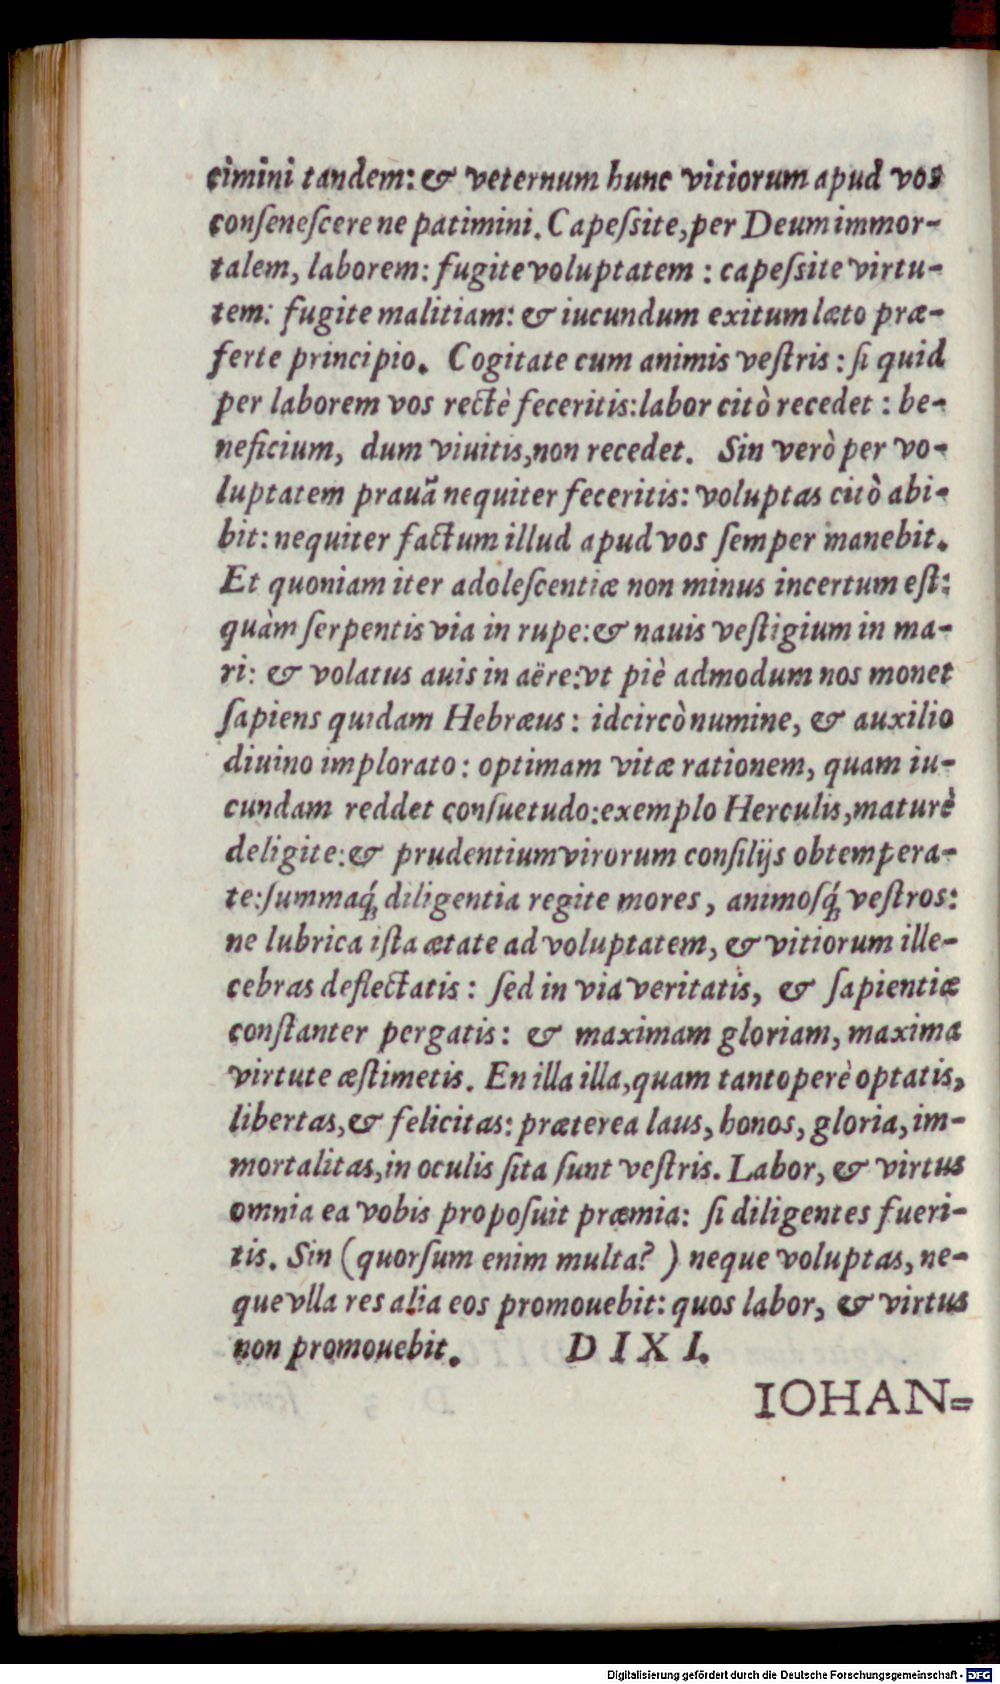 cimini tandem: & veternum hunc vitiorum apud vos
conſeneſcere ne patimini. Capeſsite, per Deum immor-
talem, laborem: fugite voluptatem : capeſsite virtu-
tem: fugite malitiam: & iucundum exitum læto præ-
ferte principio. Cogitate cum animis veſtris : ſi quid
per laborem vos rectè feceritis: labor citò recedet : be-
neficium, dum viuitis, non recedet. Sin verò per vo-
luptatem prauã nequiter feceritis: voluptas citò abi-
bit: nequiter factum illud apud vos ſemper manebit.
Et quoniam iter adoleſcentiæ non minus incertum eſt:
quàm ſerpentis via in rupe: & nauis veſtigium in ma-
ri: & volatus auis in aëre: vt piè admodum nos monet
ſapiens quidam Hebræus : idcircò numine, & auxilio
diuino implorato : optimam vitæ rationem, quam iu-
cundam reddet conſuetudo: exemplo Herculis, maturè
deligite: & prudentium virorum conſilijs obtempera-
te: ſummaq́; diligentia regite mores, animoſq́; veſtros:
ne lubrica iſta ætate ad voluptatem, & vitiorum ille-
cebras deflectatis : ſed in via veritatis, & ſapientiæ
conſtanter pergatis : & maximam gloriam, maxima
virtute æſtimetis. En illa illa, quam tantoperè optatis,
libertas, & felicitas: præterea laus, honos, gloria, im-
mortalitas, in oculis ſita ſunt veſtris. Labor, & virtus
omnia ea vobis propoſuit præmia: ſi diligentes fueri-
tis. Sin (quorſum enim multa? ) neque voluptas, ne-
que vlla res alia eos promouebit: quos labor, & virtus
non promouebit. DIXI.
IOHAN=
Digitalisierung gefördert durch die Deutsche Forschungsgemeinschaft - DFG